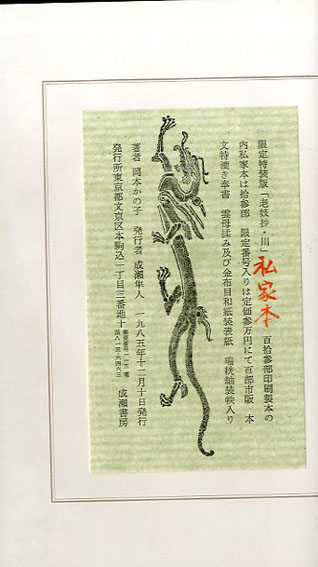 限定特装版「老妓抄・川」私家本 百拾参部印刷製本の
内私家本は拾参部 限定番号入りは定価参万円にて百部市販 本
文特漉き奉書 雲母揉み及び金布目和紙装表紙 瑞統紬装帙入り
著者 岡本かの子 発行者 成瀬隼人 一九八五年十二月十日発行
発行所東京都文京区本駒込一丁目三番地十 成瀬書房